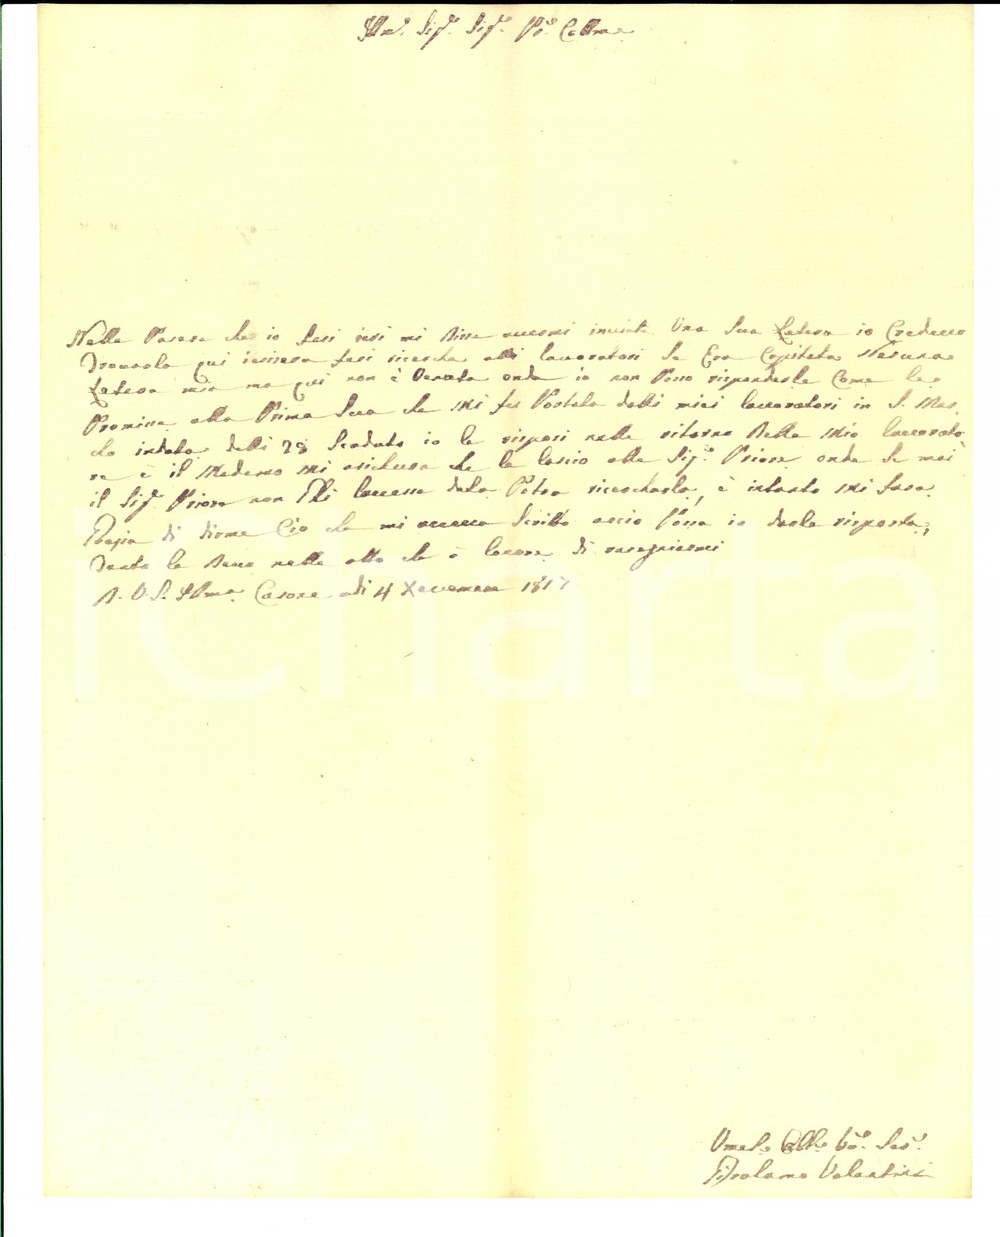 Illmo. Sigr. Sigr. Pne. Collmo
Nella Pasata che io feci ieri mi Disse avermi inviato Una Sua Letera io Credevo
Trovarla qui iersera feci ricercha alli lavoratori Se Era Capitata Nesuna
Letera mia ma qui non è Venuta onde io non Poso risponderle Come le
Promisi alla Prima Sua che Mi fu Portata dalli miei lavoratori in S. Mar
in data delli 28 Scaduto io le risposi nella ritorno Della Mio lavorato
re è il Medemo Mi asichura che la lascio alla Sigr. Priore onde Se mai
il Sigr. Priore non l'avesse data Potra ricercharla, è intanto Mi fara
Grazia di dirme Ciò che mi aveva Scritto accio Possa io darle risposta,
tanto le Devo nella atto che ò l'onore di rasegniarmi
D. V. S. Illma. Casone adi 4 Xcembre 1817
Umo. Obbo. Serr.
Girolamo Valentini
iCharta